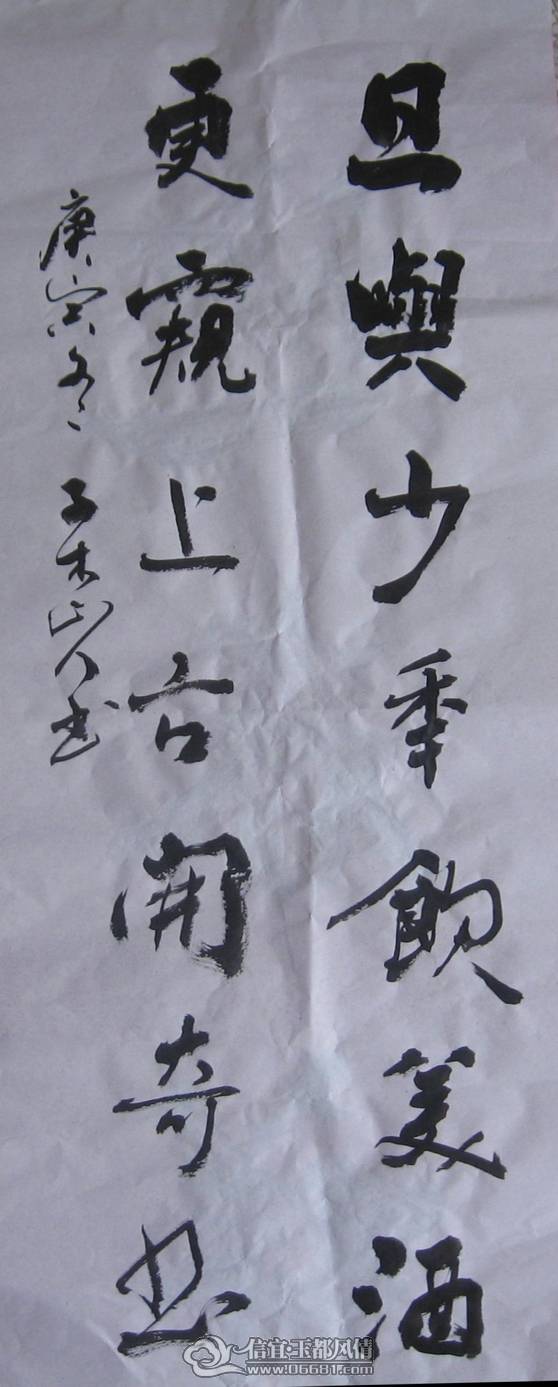 且與少秊飲美酒
更窺上古開奇书
庚寅冬 子木山人书
信宜·玉都风情
www.06681.com